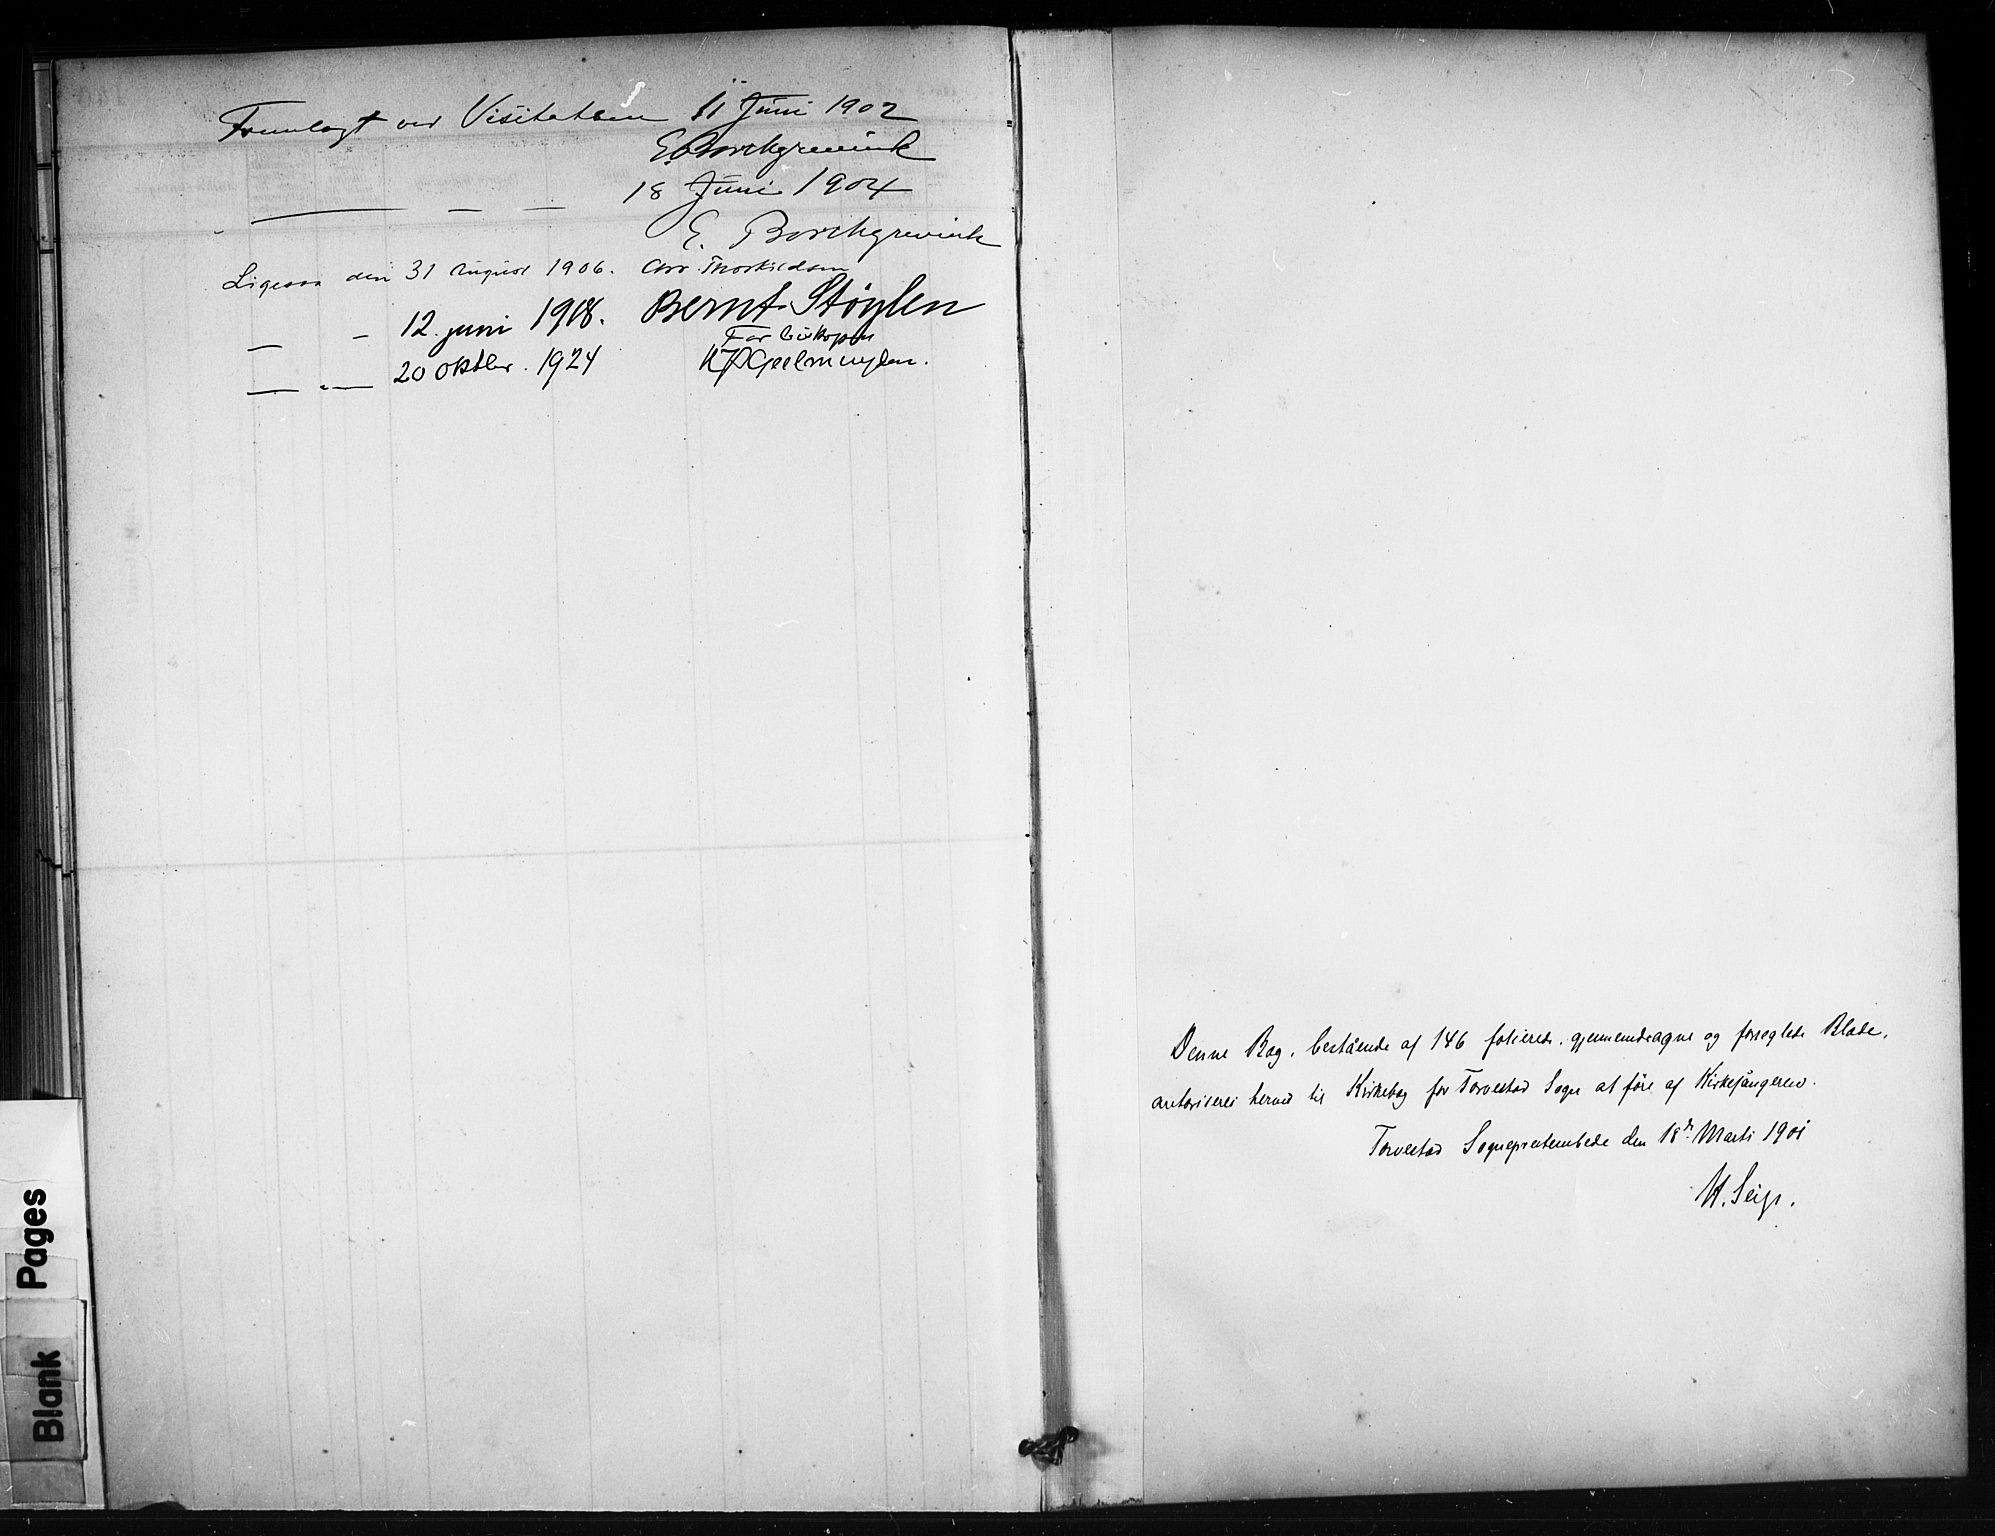 Fremlagt ved Visitatsen 11 Juni 1902
E. Borchgrevink
— — — 18 Juni 1904
E. Borchgrevink
Ligesaa den 31 August 1906. Chr. Thorkildsen
— - 12. juni 1918. Bernt Støylen
For biskopen
— „— 20 oktbr. 1924 Geelmuyden.
Denne Bog, bestående af 146 folierede, gjennemdragne og forseglede Blade,
autoriseres herved til Kirkebog for Torvestad Sogn at føre af Kirkesångeren.
Torvestad Sogneprestembede den 18de Marts 1901
H. Seip.
Blank Pages